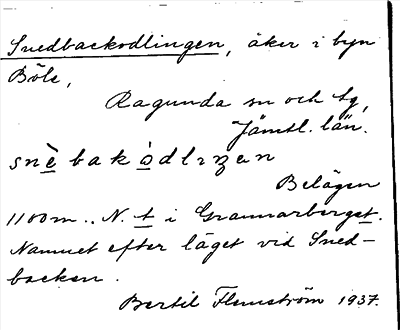 Snedbackodlingen, åker i byn
Böle,
Ragunda sn och tg,
Jämtl. län.
snè bak òdlıŋen
Belägen
1100 m.. N. t i Grannarberget.
Namnet efter läget vid Sned-
backen.
Bertil Flemström 1937.